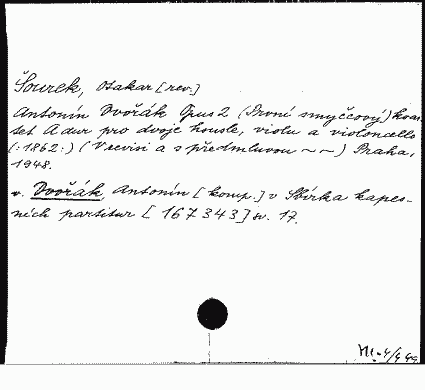 Šourek, Otakar [rev.]
Antonín Dvořák Opus 2 (První smyčcový) kvar-
tet A dur pro dvoje housle, violu a violoncello
(:1862:) (V revisi a s předmluvou ~ ~) Praha,
1948.
v. Dvořák, Antonín [komp.] v Sbírka kapes-
ních partitur [167343] sv. 17.